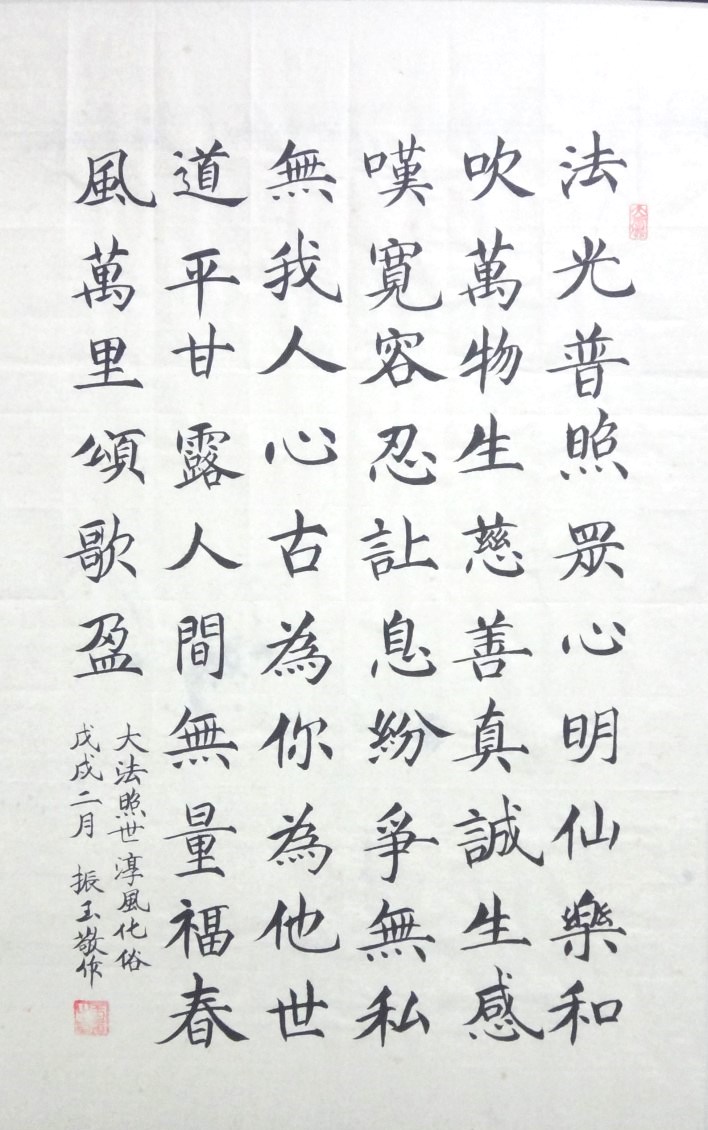 法光普照眾心明仙樂和
吹萬物生慈善真誠生感
嘆寬容忍讓息紛爭無私
無我人心古為你為他世
道平甘露人間無量福春
風萬里頌歌盈
大法照世淳風化俗
戊戌二月 振玉敬作